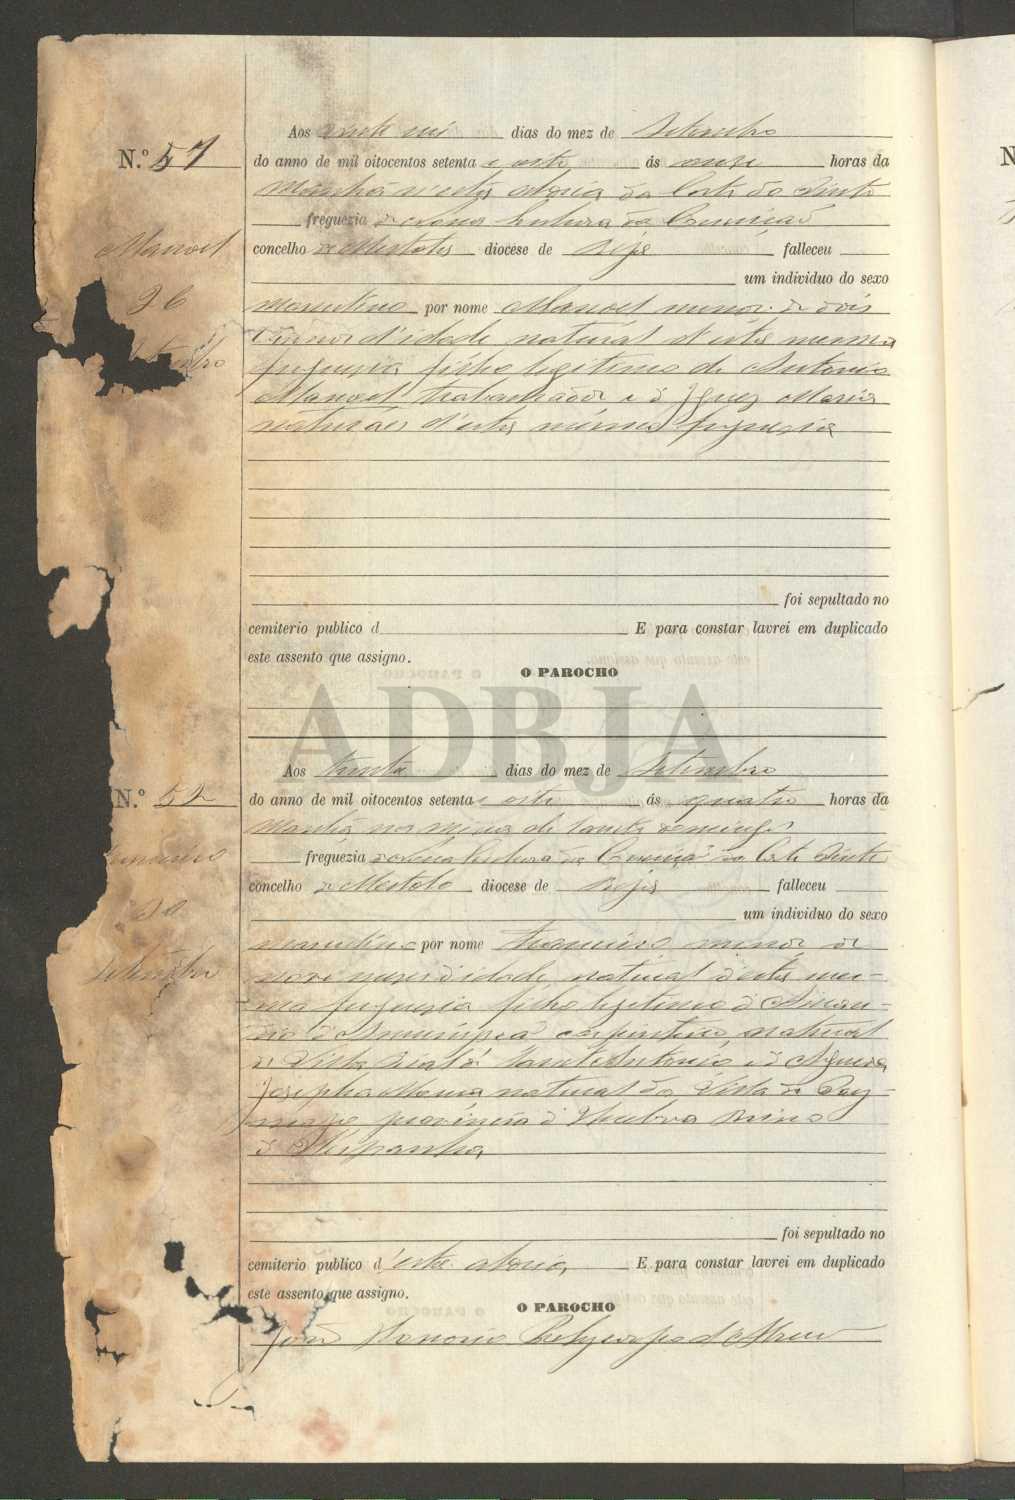 N.º 51
Aos vinte seis dias do mez de Setembro
do anno de mil oitocentos setenta e oito ás onze horas da
Manhã n'esta aldeia da Corte do Pinto
freguezia de Nossa Senhora da Conceição
concelho de Mertola diocese de Beja falleceu
Manoel
um individuo do sexo
26
masculino por nome Manoel menor de dois
annos d'idade natural d'esta mesma
freguezia filho legitimo de Antonio
Manoel trabalhador e d'Ignez Maria
naturáes d'esta mesma freguezia
foi sepultado no
cemiterio publico d E para constar lavrei em duplicado
este assento que assigno.
O PAROCHO
ADBJA
N.º 52
Aos trinta dias do mez de Setembro
do anno de mil oitocentos setenta e oito ás quatro horas da
Manhã na Mina de Santo Domingos
freguezia de Nossa Senhora da Conceição da Corte Pinto
concelho de Mertola diocese de Beja falleceu
30
um individuo do sexo
Setembro
masculino por nome Francisco menor de
nove mezes d'idade natural d'esta mes-
ma freguezia filho legitimo de
d'Assumpção carpinteiro natural
de Villa Real de Santo Antonio e de
Josepha Maria natural da Villa de Pay-
mogo provincia d'Huelva Reino
d'Hespanha
foi sepultado no
cemiterio publico d'esta aldeia E para constar lavrei em duplicado
este assento que assigno.
O PAROCHO
João Honorio d'Abreu
N